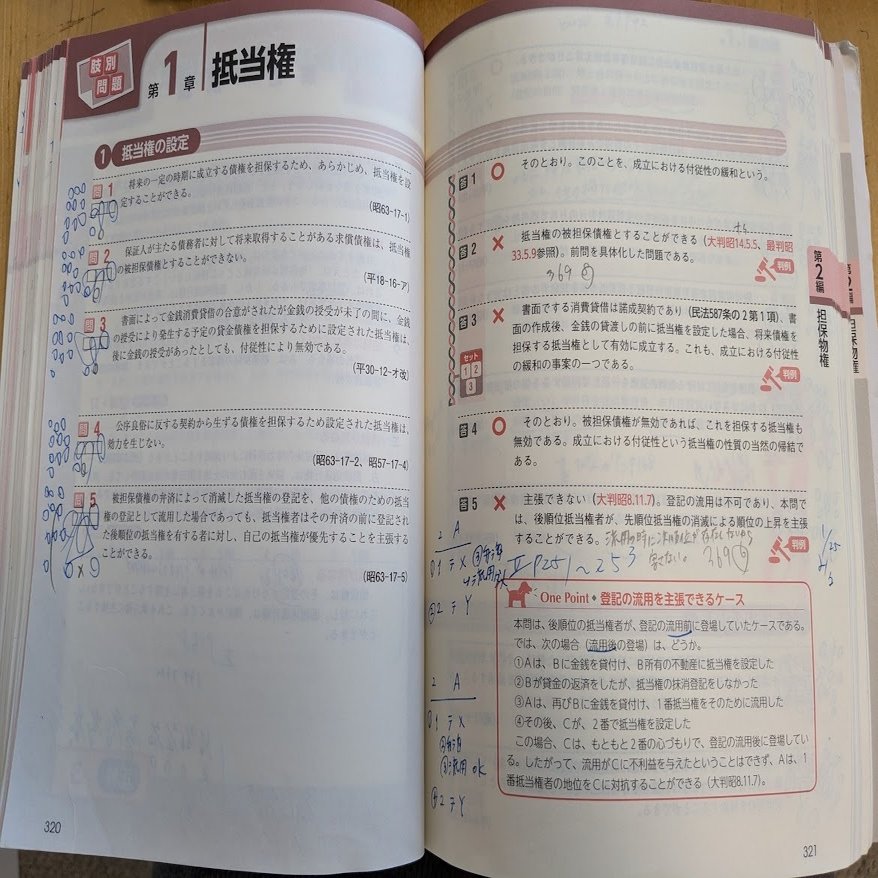 肢別問題
第1章 抵当権
1 抵当権の設定
問1 将来の一定の時期に成立する債権を担保するため、あらかじめ、抵当権を設
定することができる。
(昭63-17-1)
問2 保証人が主たる債務者に対して将来取得することがある求償債権は、抵当権
の被担保債権とすることができない。
(平18-16-ア)
問3 書面によって金銭消費貸借の合意がされたが金銭の授受が未了の間に、金銭
の授受により発生する予定の貸金債権を担保するために設定された抵当権は、
後に金銭の授受があったとしても、付従性により無効である。
(平30-12-オ改)
問4 公序良俗に反する契約から生ずる債権を担保するため設定された抵当権は、
効力を生じない。
(昭63-17-2、昭57-17-4)
問5 被担保債権の弁済によって消滅した抵当権の登記を、他の債権のための抵当
権の登記として流用した場合であっても、抵当権者はその弁済の前に登記され
た後順位の抵当権を有する者に対し、自己の抵当権が優先することを主張する
ことができる。
(昭63-17-5)
320
答1 ○ そのとおり。このことを、成立における付従性の緩和という。
答2 × 抵当権の被担保債権とすることができる(大判昭14.5.5、最判昭
33.5.9参照)。前問を具体化した問題である。
判例
369⑤
答3 × 書面でする消費貸借は諾成契約であり(民法587条の2第1項)、書
面の作成後、金銭の貸渡しの前に抵当権を設定した場合、将来債権を
担保する抵当権として有効に成立する。これも、成立における付従性
の緩和の事案の一つである。
セット
1 2
3
判例
答4 ○ そのとおり。被担保債権が無効であれば、これを担保する抵当権も
無効である。成立における付従性という抵当権の性質の当然の帰結で
ある。
答5 × 主張できない(大判昭8.11.7)。登記の流用は不可であり、本問で
は、後順位抵当権者が、先順位抵当権の消滅による順位の上昇を主張
することができる。
判例
369⑥
Ⅱ P251~253
1/25
2 A
①1テX
②2テY
One Point◆登記の流用を主張できるケース
本問は、後順位の抵当権者が、登記の流用前に登場していたケースである。
では、次の場合(流用後の登場)は、どうか。
①Aは、Bに金銭を貸付け、B所有の不動産に抵当権を設定した
②Bが貸金の返済をしたが、抵当権の抹消登記をしなかった
③Aは、再びBに金銭を貸付け、1番抵当権をそのために流用した
④その後、Cが、2番で抵当権を設定した
この場合、Cは、もともと2番の心づもりで、登記の流用後に登場してい
る。したがって、流用がCに不利益を与えたということはできず、Aは、1
番抵当権者の地位をCに対抗することができる(大判昭8.11.7)。
2 A
①1テX
②弁済
③流用 ok
④2テY
第2編 担保物権
第2編 担保物権
321